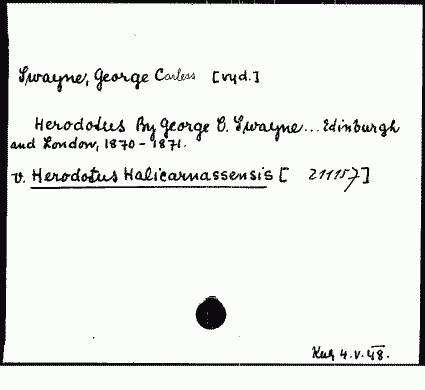 Swayne, George Carless [vyd.]
Herodotus By George C. Swayne... Edinburgh
and London, 1870-1871.
v. Herodotus Halicarnassensis [ 211157]
4.V.48.